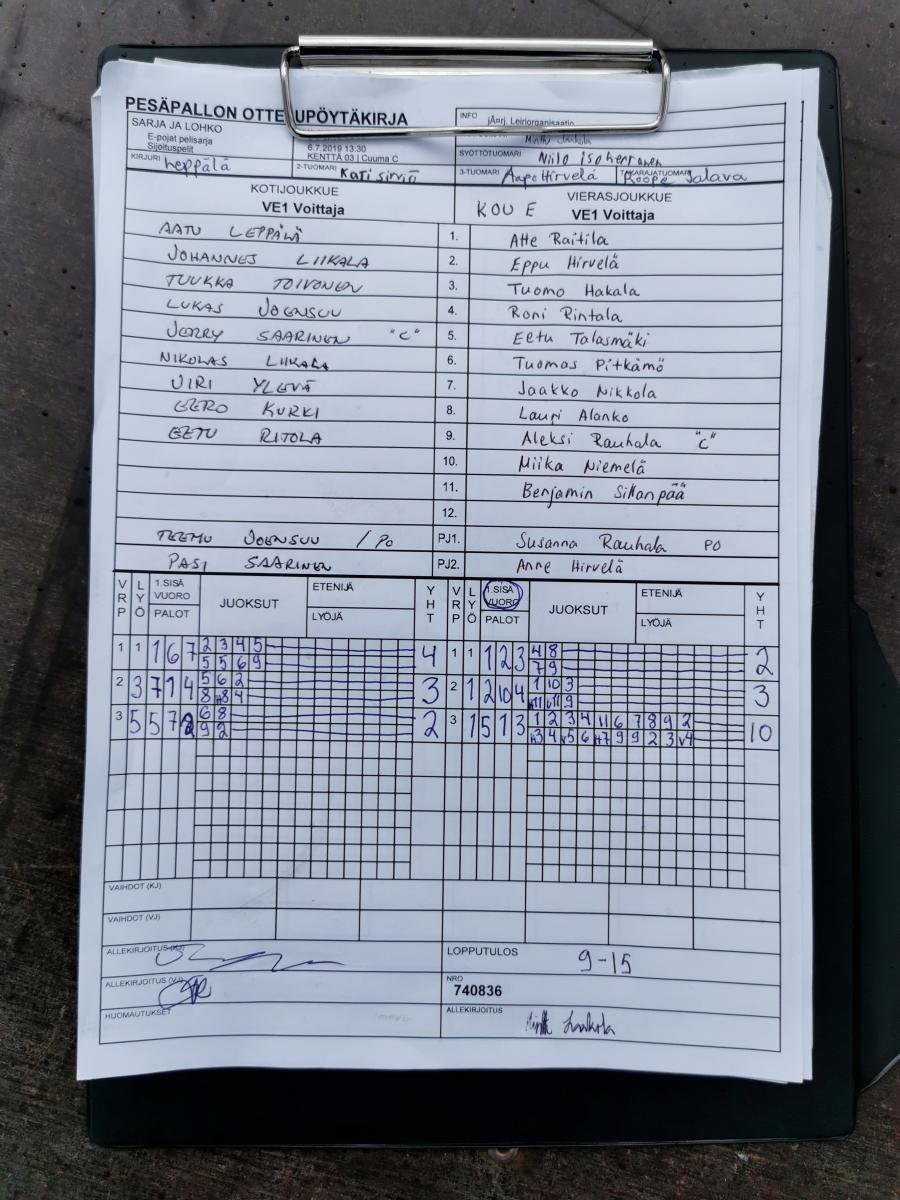 PESÄPALLON OTTELUPÖYTÄKIRJA
INFO jÄnrj. Leiriorganisaatio
SARJA JA LOHKO
E-pojat pelisarja
Sijoituspelit
6.7.2019 13:30
KENTTÄ 03 | Cuuma C
SYÖTTÖTUOMARI Niilo Isoherranen
KIRJURI Leppälä 2-TUOMARI Kati Sirviö 3-TUOMARI Aapo Hirvelä TAKARAJATUOMARI Roope Jalava
KOTIJOUKKUE VIERASJOUKKUE
VE1 Voittaja KOU E VE1 Voittaja
AATU LEPPÄLÄ 1. Atte Raitila
JOHANNES LIIKALA 2. Eppu Hirvelä
TUUKKA TOIVONEN 3. Tuomo Hakala
LUKAS JOENSUU 4. Roni Rintala
JERRY SAARINEN "C" 5. Eetu Talasmäki
NIKOLAS LIIKALA 6. Tuomas Pitkämö
JIRI YLEVÄ 7. Jaakko Nikkola
EERO KURKI 8. Lauri Alanko
EETU RITOLA 9. Aleksi Rauhala "C"
10. Miika Niemelä
11. Benjamin Sillanpää
12.
TEEMU JOENSUU /PO PJ1. Susanna Rauhala PO
PASI SAARINEN PJ2. Anne Hirvelä
VRP LYÖ 1.SISÄ VUORO PALOT JUOKSUT ETENIJÄ LYÖJÄ YHT VRP LYÖ 1.SISÄ VUORO PALOT JUOKSUT ETENIJÄ LYÖJÄ YHT
1 1 1 6 7 2 3 4 5 4 1 1 1 2 3 4 8 2
5 5 6 9 7 9
2 3 7 1 4 5 6 2 3 2 1 2 10 4 1 10 3 3
8 H8 4 H11 V11 9
3 5 5 7 2 6 8 2 3 1 5 1 3 1 2 3 4 11 6 7 8 9 2 10
9 2 H3 4 V5 6 H7 9 9 2 3 V4
VAIHDOT (KJ)
VAIHDOT (VJ)
ALLEKIRJOITUS (KJ) LOPPUTULOS 9-15
ALLEKIRJOITUS (VJ) NRO
740836
HUOMAUTUKSET ALLEKIRJOITUS